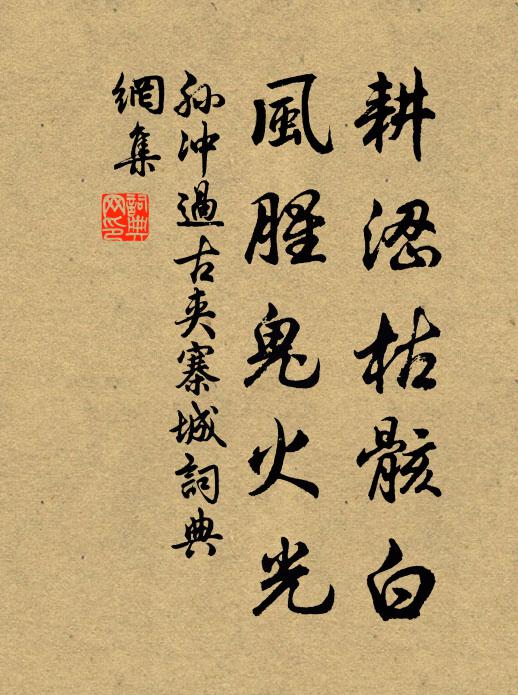 耕枯骸白
風腥鬼火光
孫冲過古夾寨城詞典
網集
詞典
网印